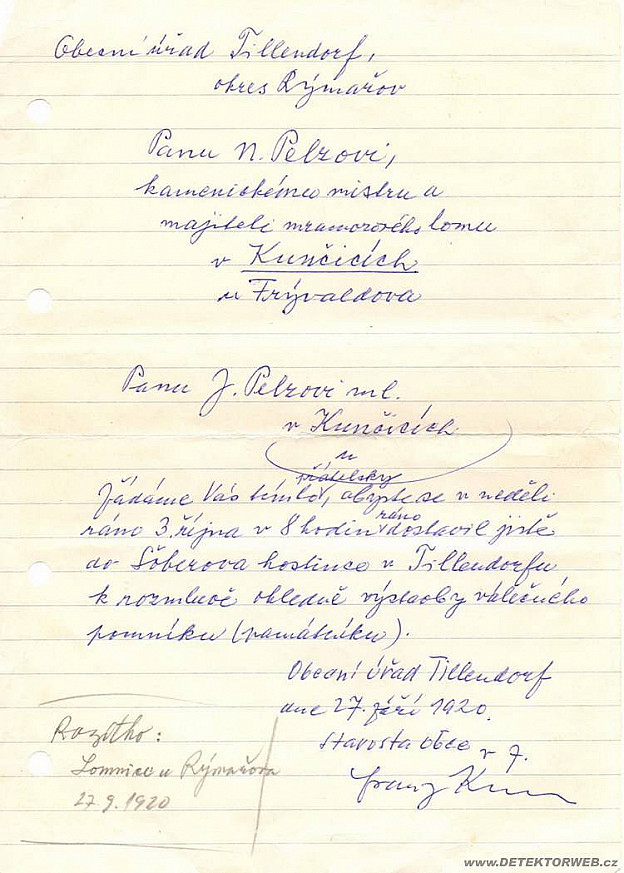 Obecní úřad Tillendorf,
okres Rýmařov
Panu N. Pelzovi,
kamenickému mistru a
majiteli mramorového lomu
v Kunčicích
u Frývaldova
Panu J. Pelzovi ml.
v Kunčicích
u
přátelsky
Žádáme Vás tímto, abyste se v neděli
ráno
ráno 3. října v 8 hodin dostavil jistě
do Šöberova hostince v Tillendorfu
k rozmluvě ohledně výstavby válečného
pomníku (památníku).
Obecní úřad Tillendorf
dne 27. září 1920.
Starosta obce v z.
Franz
Razítko:
Lomnice u Rýmařova
27.9.1920
www.DETEKTORWEB.cz